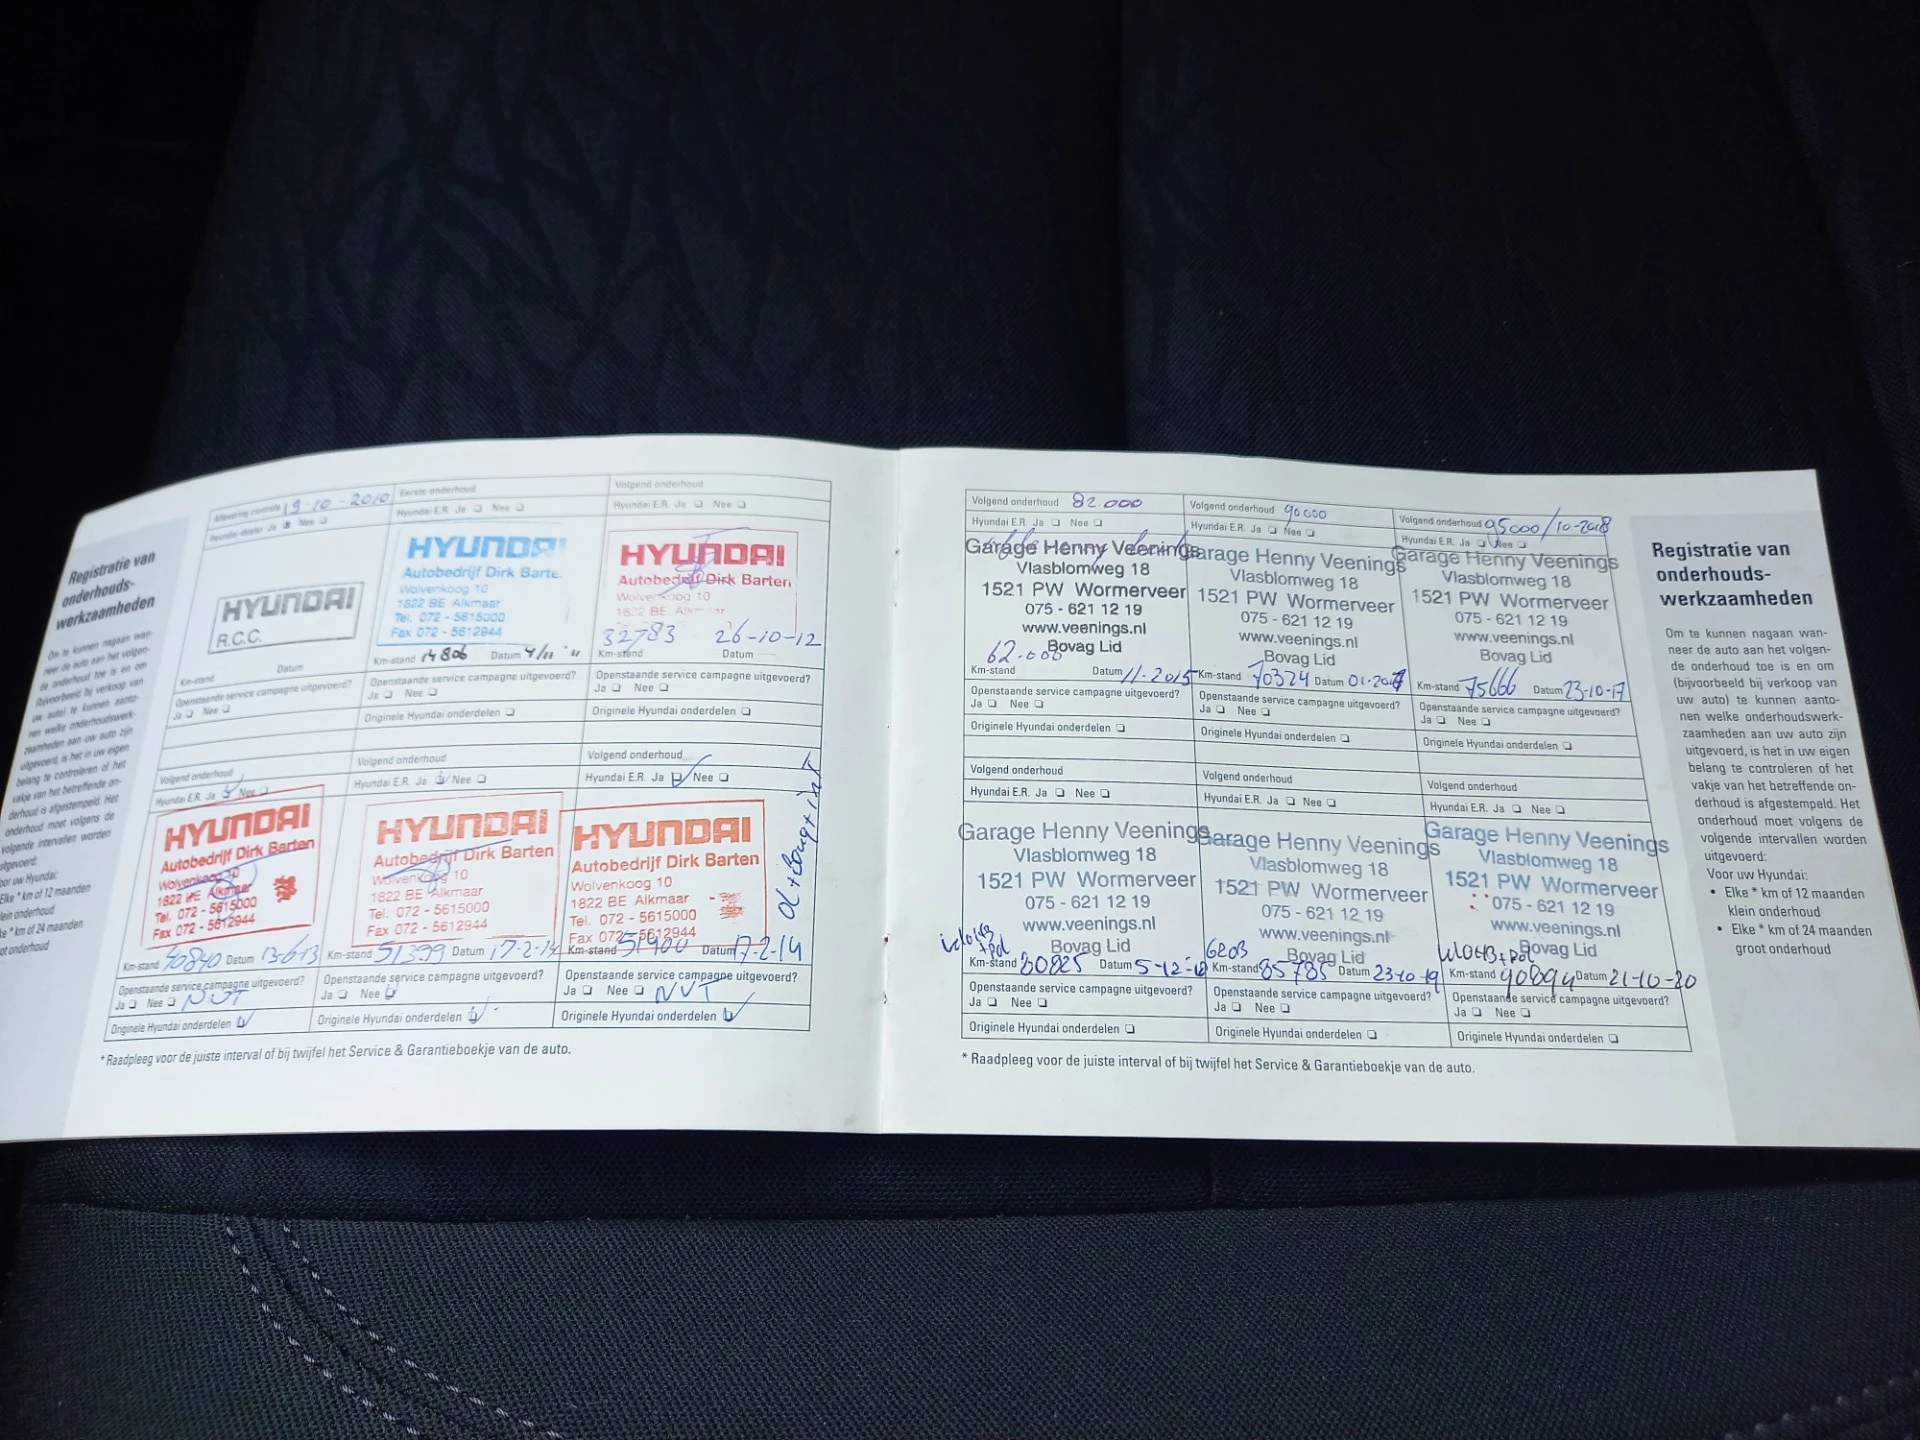 Registratie van
onderhouds-
werkzaamheden
Om te kunnen nagaan wan-
neer de auto aan het volgen-
de onderhoud toe is en om
(bijvoorbeeld bij verkoop van
uw auto) te kunnen aanto-
nen welke onderhoudswerk-
zaamheden aan uw auto zijn
uitgevoerd, is het in uw eigen
belang te controleren of het
vakje van het betreffende on-
derhoud is afgestempeld. Het
onderhoud moet volgens de
volgende intervallen worden
uitgevoerd:
oor uw Hyundai:
Elke * km of 12 maanden
klein onderhoud
ke * km of 24 maanden
oot onderhoud
Aflevering controle 19-10-2010
Hyundai-dealer Ja Nee
HYUNDAI
R.C.C.
Km-stand Datum
Openstaande service campagne uitgevoerd?
Ja Nee
Eerste onderhoud
Hyundai E.R. Ja Nee
HYUNDAI
Autobedrijf Dirk Barte
Wolvenkoog 10
1822 BE Alkmaar
Tel. 072 - 5615000
Fax 072 - 5612944
Km-stand 14806 Datum 4/11 11
Openstaande service campagne uitgevoerd?
Ja Nee
Originele Hyundai onderdelen
Volgend onderhoud
Hyundai E.R. Ja Nee
HYUNDAI
Autobedrijf Dirk Barten
Wolvenkoog 10
1822 BE Alkmaar
32783 26-10-12
Km-stand Datum
Openstaande service campagne uitgevoerd?
Ja Nee
Originele Hyundai onderdelen
Volgend onderhoud
Hyundai E.R. Ja Nee
HYUNDAI
Autobedrijf Dirk Barten
Wolvenkoog 10
1822 BE Alkmaar
Tel. 072 - 5615000
Fax 072 - 5612944
Km-stand 40840 Datum 13-6-13
Openstaande service campagne uitgevoerd?
Ja Nee NVT
Originele Hyundai onderdelen
Volgend onderhoud
Hyundai E.R. Ja Nee
HYUNDAI
Autobedrijf Dirk Barten
Wolvenkoog 10
1822 BE Alkmaar
Tel. 072 - 5615000
Fax 072 - 5612944
Km-stand 51399 Datum 17-2-14
Openstaande service campagne uitgevoerd?
Ja Nee
Originele Hyundai onderdelen
Volgend onderhoud
Hyundai E.R. Ja Nee
HYUNDAI
Autobedrijf Dirk Barten
Wolvenkoog 10
1822 BE Alkmaar
Tel. 072 - 5615000
Fax 072 - 5612944
Km-stand 51400 Datum 17-2-14
Openstaande service campagne uitgevoerd?
Ja Nee NVT
Originele Hyundai onderdelen
* Raadpleeg voor de juiste interval of bij twijfel het Service & Garantieboekje van de auto.
Volgend onderhoud 82.000
Hyundai E.R. Ja Nee
Garage Henny Veenings
Vlasblomweg 18
1521 PW Wormerveer
075 - 621 12 19
www.veenings.nl
Bovag Lid
62.000
Km-stand Datum 11-2015
Openstaande service campagne uitgevoerd?
Ja Nee
Originele Hyundai onderdelen
Volgend onderhoud 90000
Hyundai E.R. Ja Nee
Garage Henny Veenings
Vlasblomweg 18
1521 PW Wormerveer
075 - 621 12 19
www.veenings.nl
Bovag Lid
Km-stand 70324 Datum 01-2017
Openstaande service campagne uitgevoerd?
Ja Nee
Originele Hyundai onderdelen
Volgend onderhoud 95000/10-2018
Hyundai E.R. Ja Nee
Garage Henny Veenings
Vlasblomweg 18
1521 PW Wormerveer
075 - 621 12 19
www.veenings.nl
Bovag Lid
Km-stand 75666 Datum 23-10-17
Openstaande service campagne uitgevoerd?
Ja Nee
Originele Hyundai onderdelen
Volgend onderhoud
Hyundai E.R. Ja Nee
Garage Henny Veenings
Vlasblomweg 18
1521 PW Wormerveer
075 - 621 12 19
www.veenings.nl
Bovag Lid
Km-stand 80825 Datum 5-12-18
Openstaande service campagne uitgevoerd?
Ja Nee
Originele Hyundai onderdelen
Volgend onderhoud
Hyundai E.R. Ja Nee
Garage Henny Veenings
Vlasblomweg 18
1521 PW Wormerveer
075 - 621 12 19
www.veenings.nl
Bovag Lid
Km-stand 85785 Datum 23-10-19
Openstaande service campagne uitgevoerd?
Ja Nee
Originele Hyundai onderdelen
Volgend onderhoud
Hyundai E.R. Ja Nee
Garage Henny Veenings
Vlasblomweg 18
1521 PW Wormerveer
075 - 621 12 19
www.veenings.nl
Bovag Lid
Km-stand 90894 Datum 21-10-20
Openstaande service campagne uitgevoerd?
Ja Nee
Originele Hyundai onderdelen
* Raadpleeg voor de juiste interval of bij twijfel het Service & Garantieboekje van de auto.
Registratie van
onderhouds-
werkzaamheden
Om te kunnen nagaan wan-
neer de auto aan het volgen-
de onderhoud toe is en om
(bijvoorbeeld bij verkoop van
uw auto) te kunnen aanto-
nen welke onderhoudswerk-
zaamheden aan uw auto zijn
uitgevoerd, is het in uw eigen
belang te controleren of het
vakje van het betreffende on-
derhoud is afgestempeld. Het
onderhoud moet volgens de
volgende intervallen worden
uitgevoerd:
Voor uw Hyundai:
• Elke * km of 12 maanden
klein onderhoud
• Elke * km of 24 maanden
groot onderhoud